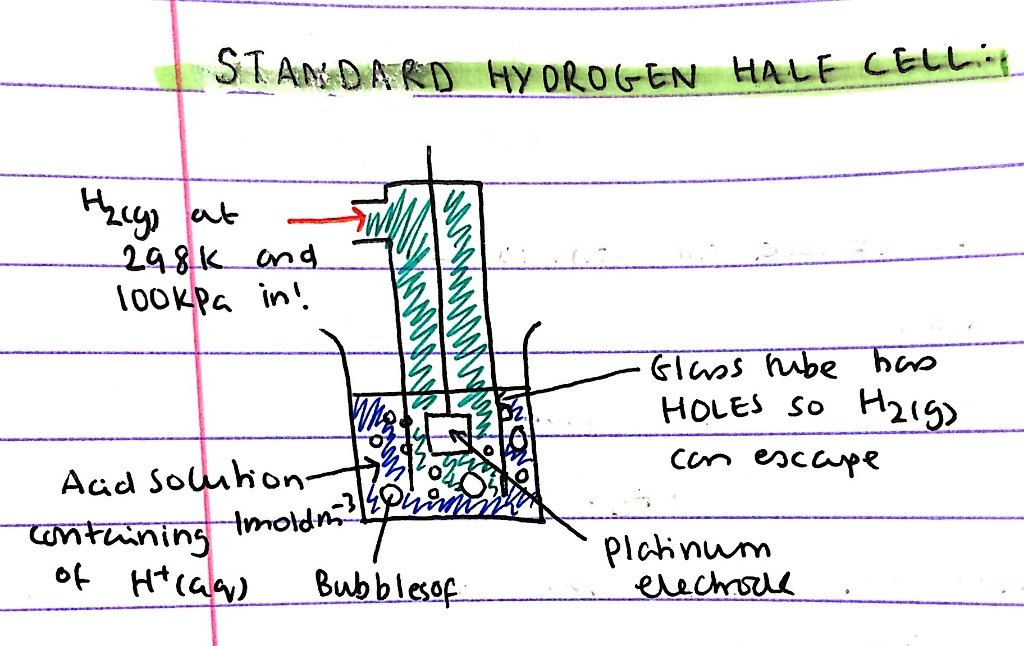 STANDARD HYDROGEN HALF CELL:
H2(g) at
298K and
100KPa in!
Glass tube has
HOLES so H2(g)
can escape
Acid solution
containing 1moldm-3
of H+(aq)
Bubblesof
Platinum
electrode